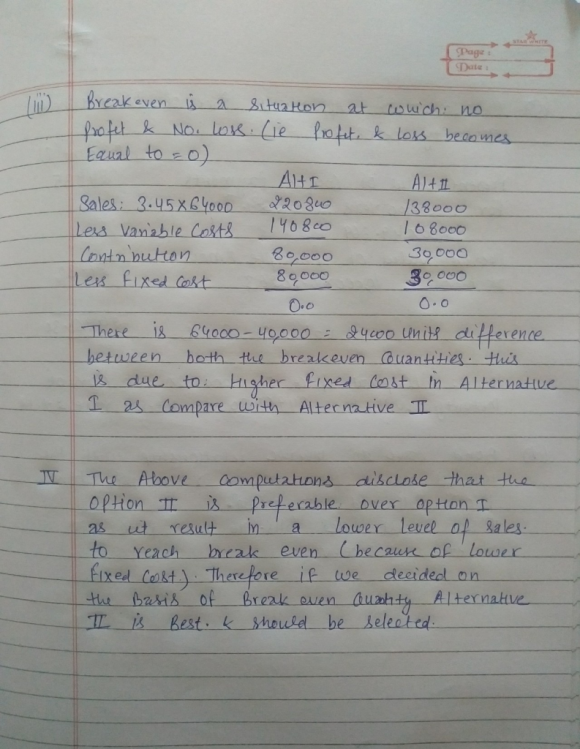 Page:
Date:
(iii) Breakeven is a situation at which no
Profit & No. Loss. (ie Profit. & loss becomes
Equal to = 0)
Alt I Alt II
Sales: 3.45 x 64000 220800 138000
Less Variable Costs 140800 108000
Contribution 80,000 30,000
Less Fixed Cost 80,000 30,000
0.0 0.0
There is 64000 - 40,000 = 24000 Units difference
between both the breakeven Quantities. this
is due to. Higher Fixed Cost in Alternative
I as Compare with Alternative II
IV The Above Computations disclose that the
Option II is Preferable over option I
as it result in a lower level of sales.
to reach break even (because of lower
fixed Cost). Therefore if we decided on
the Basis of Break even Quantity Alternative
II is Best. & should be selected.